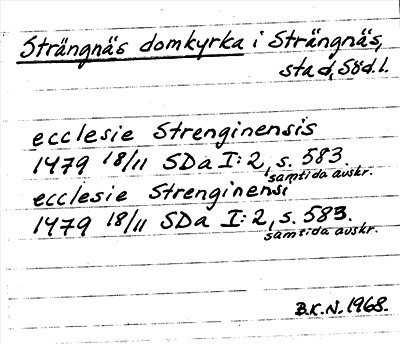 Strängnäs domkyrka i Strängnäs,
stad, Söd.l.
ecclesie Strenginensis
1479 18/11 SDa I:2, s. 583.
samtida avskr.
ecclesie Strenginensi
1479 18/11 SDa I:2, s. 583.
samtida avskr.
B.K.N. 1968.